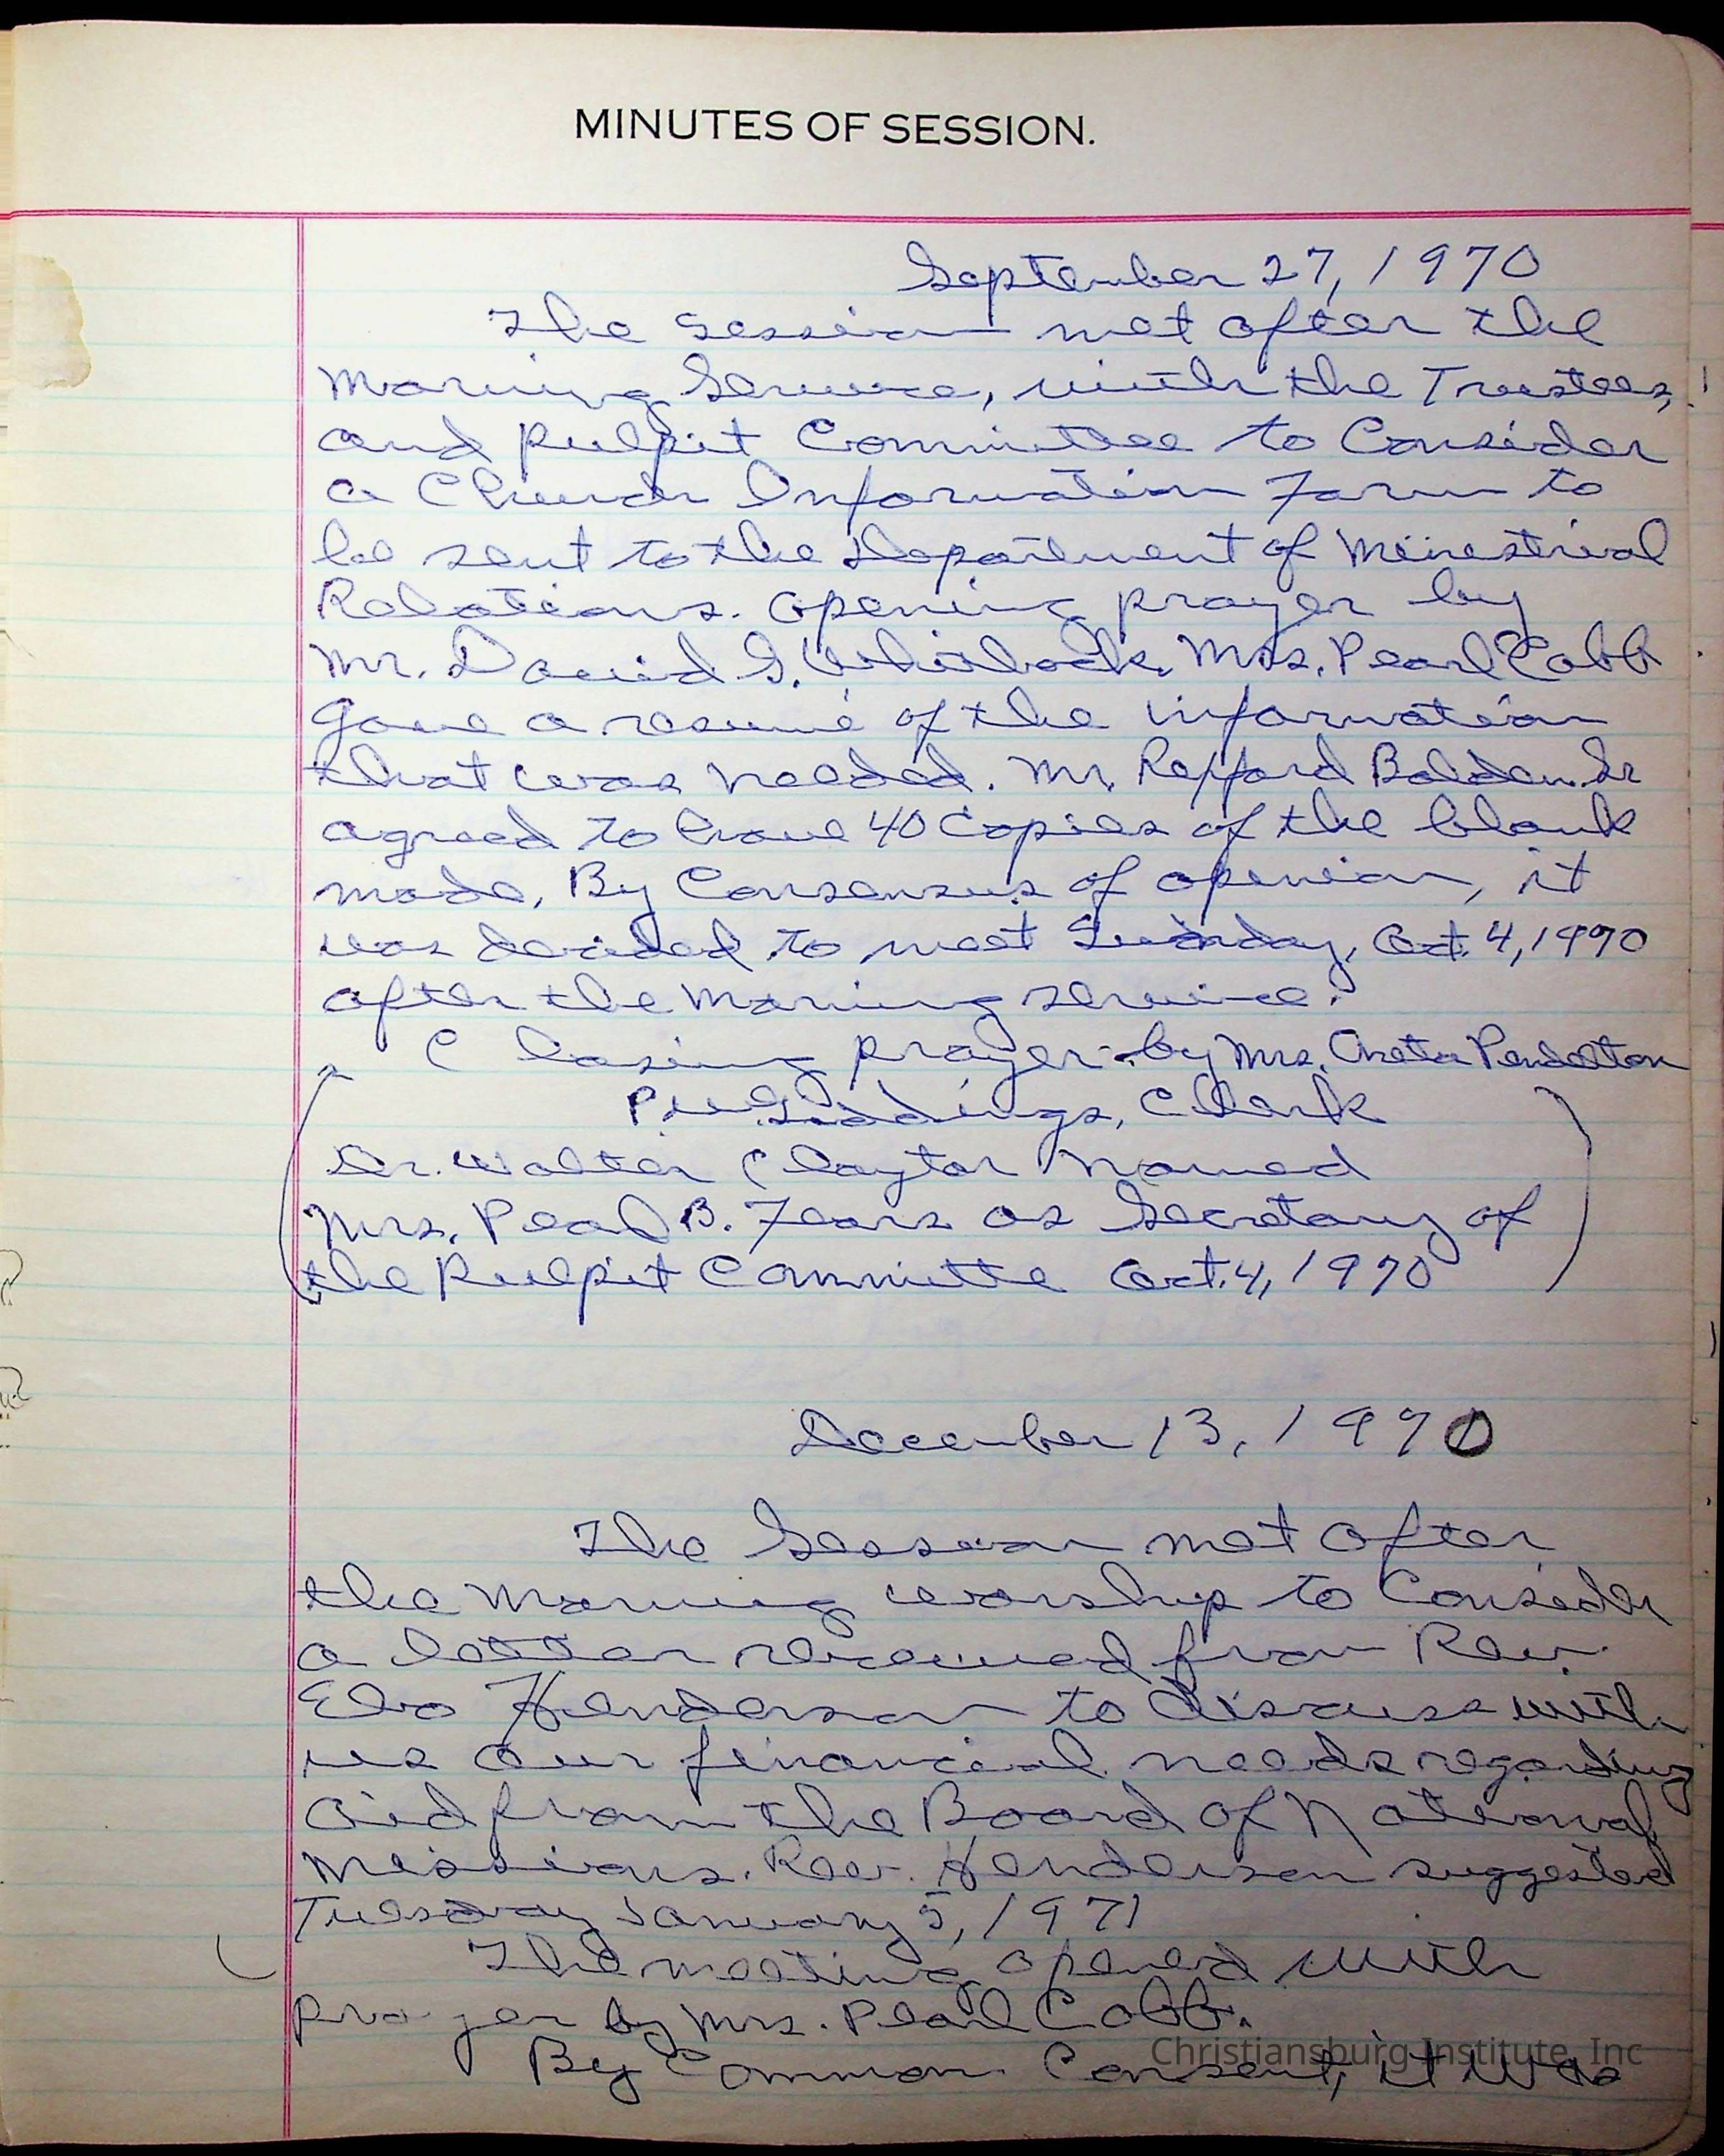 MINUTES OF SESSION.
September 27, 1970
The Session met after the
Morning Service, with the Trustees,
and Pulpit Committee to Consider
a Church Information Form to
be sent to the Department of Ministerial
Relations. Opening prayer by
Mr. David G. Whitlock. Mrs. Pearl Cobb
Gave a resume of the information
that was needed. Mr. Repford Bolden Sr
agreed to have 40 Copies of the blank
made. By Consensus of openion, it
was decided to meet Sunday, Oct. 4, 1970
after the Morning service.
Closing prayer by Mrs. Oneta Pendelton
Giddings, Clerk
Dr. Walter Claytor Named
Mrs. Pearl B. Fears as Secretary of
the Pulpit Committe Oct. 4, 1970
December 13, 1970
The Session met after
the Morning worship to Consider
a letter received from Rev.
Elo Henderson to discuss with
us our financial needs regarding
aid from the Board of National
Missions. Rev. Henderson suggested
Tuesday January 5, 1971
The meeting opened with
prayer by Mrs. Pearl Cobb.
By Common Consent, it was
Christiansburg Institute, Inc